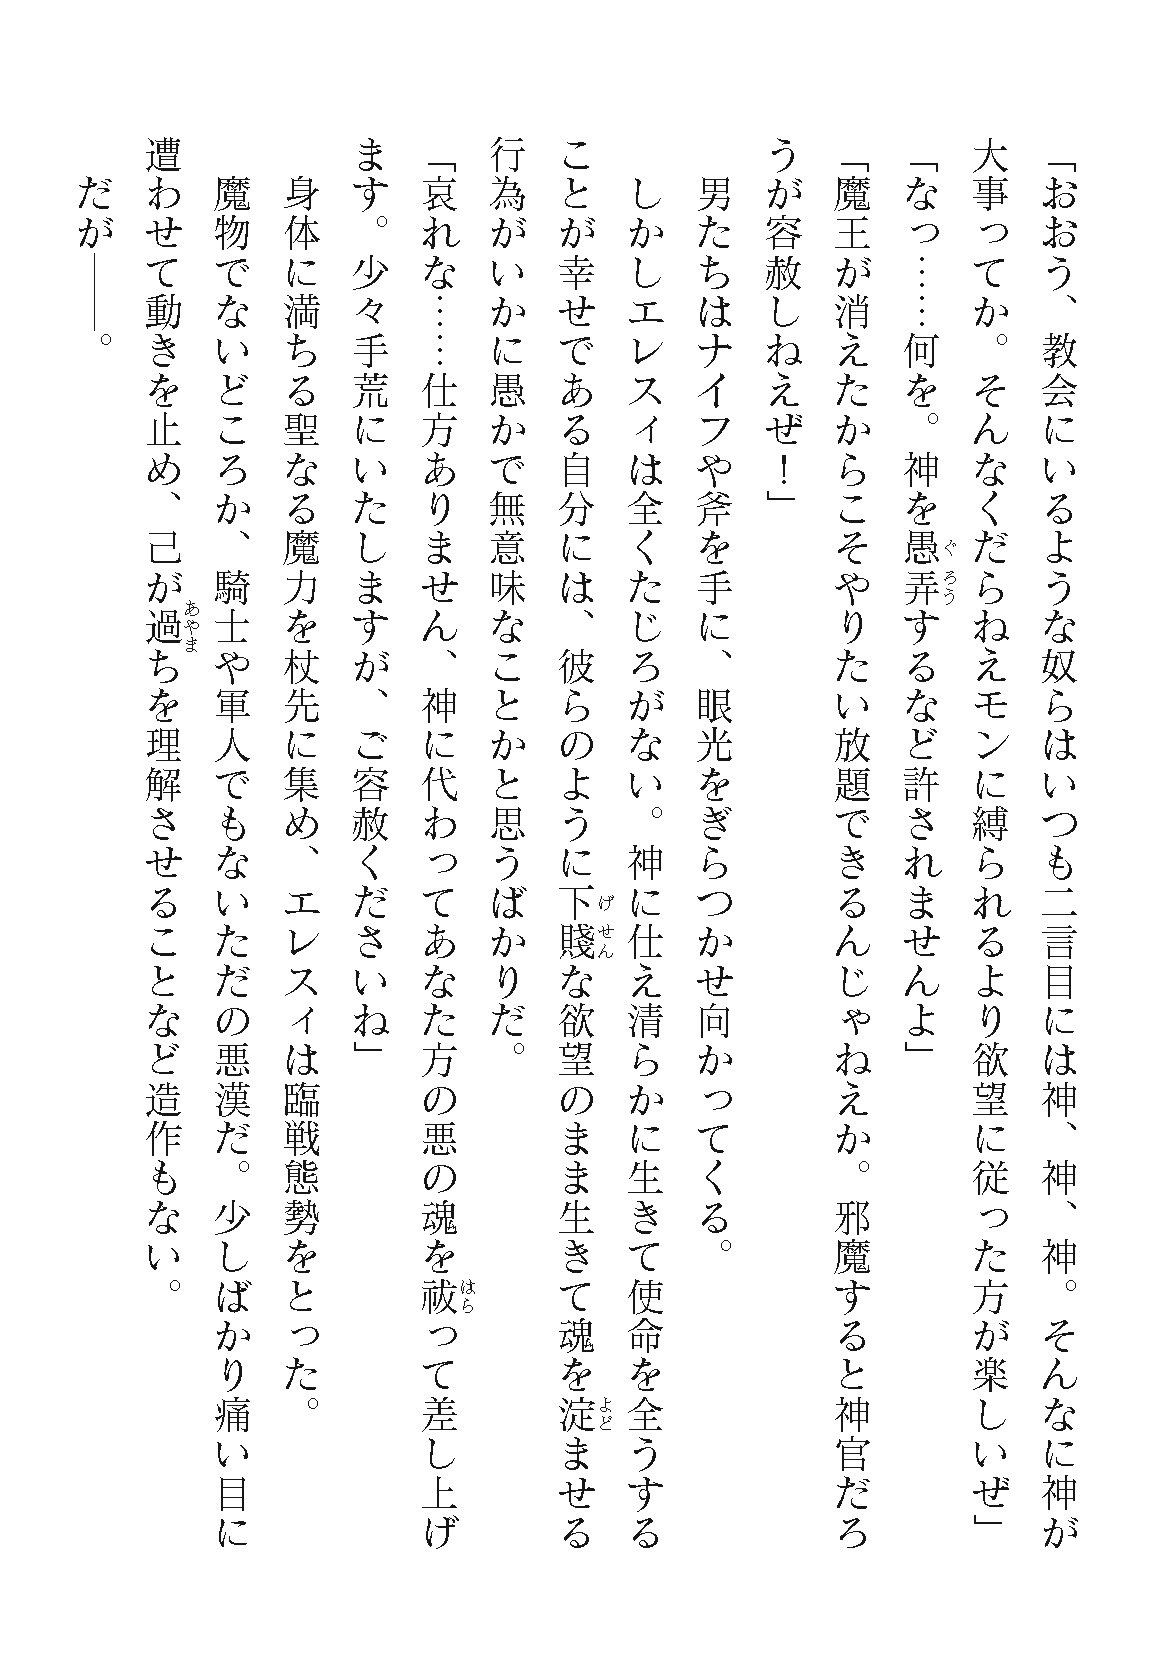 「おおう、教会にいるような奴らはいつも二言目には神、神、神。そんなに神が
大事ってか。そんなくだらねえモンに縛られるより欲望に従った方が楽しいぜ」
「なっ……何を。神を愚弄するなど許されませんよ」
「魔王が消えたからこそやりたい放題できるんじゃねえか。邪魔すると神官だろ
うが容赦しねえぜ！」
男たちはナイフや斧を手に、眼光をぎらつかせ向かってくる。
しかしエレスィは全くたじろがない。神に仕え清らかに生きて使命を全うする
ことが幸せである自分には、彼らのように下賤な欲望のまま生きて魂を淀ませる
行為がいかに愚かで無意味なことかと思うばかりだ。
「哀れな……仕方ありません、神に代わってあなた方の悪の魂を祓って差し上げ
ます。少々手荒にいたしますが、ご容赦くださいね」
身体に満ちる聖なる魔力を杖先に集め、エレスィは臨戦態勢をとった。
魔物でないどころか、騎士や軍人でもないただの悪漢だ。少しばかり痛い目に
遭わせて動きを止め、己が過ちを理解させることなど造作もない。
だが――。